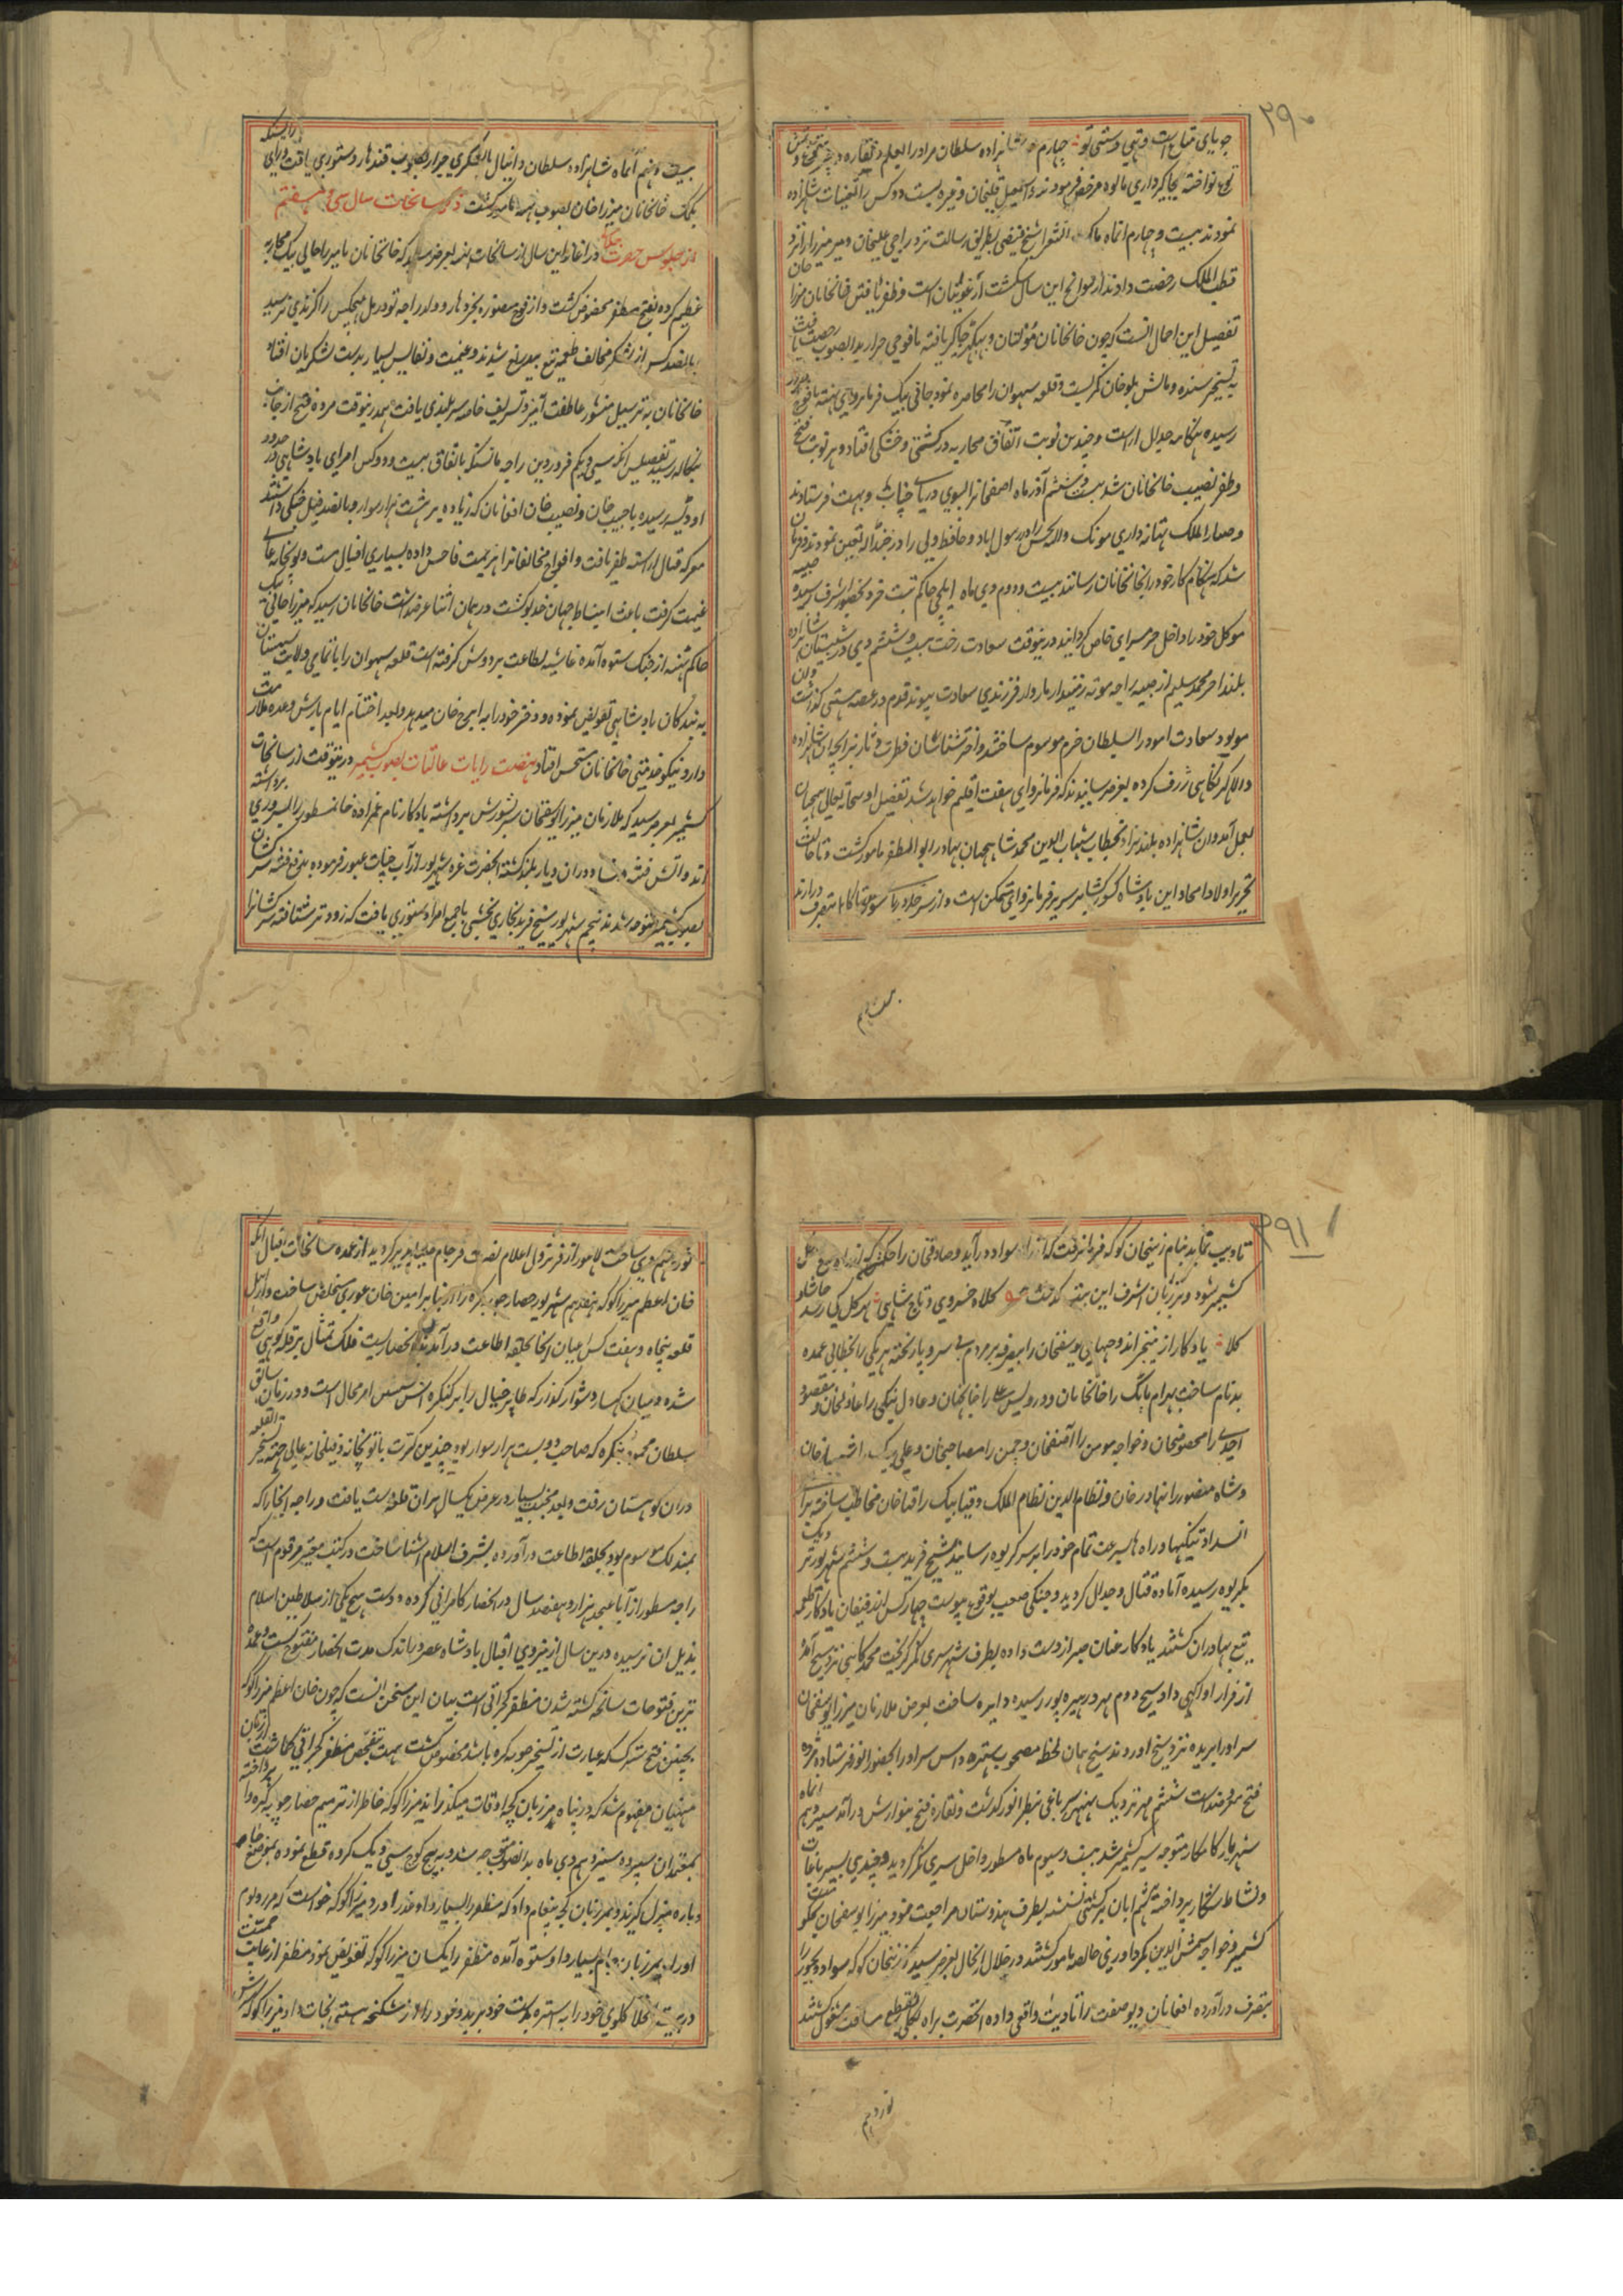 ۲۹۰
جویای متاع است و تهی دستی تو چهارم شاهزاده سلطان مراد را بعلم و نقاره و
نموده بجاگیرداری مالوه مرخص فرمودند و اسمعیل قلیخان و غیره بیست دو کس را تعینات شاهزاده
نمودند بیست و چهارم اتماه ملک الشعرا شیخ فیضی بطریق رسالت نزد راجی علیخان و میر میرزا را نزد
قطب الملک رخصت دادند از سوانح این سال شکست ارغونیان است و ظفر یافتن خانخانان میرزا خان
تفصیل این اجمال انست که چون خانخانان ملتان و بهکر جاگیر یافته با فوجی جرار بدانصوب رخصت یافت
به تسخیر سنده و مالش بلوچان کمر بست و قلعه سهوان را محاصره نمود جانی بیک فرمانروای تهته با فوج
رسیده هنگامه جدال آراست و چندین نوبت اتفاق محاربه در کشتی و خشکی افتاد و هر نوبت فتح
و ظفر نصیب خانخانان شد بیست و ششم آذر ماه اصفخانرا بسوی دریای چناب و بهت فرستادند
شد که هنگام کار خود را بخانخانان رسانند بیست و دوم دی ماه ایلچی حاکم تبت خرد بحضور اشرف رسیده
موکل خود را داخل حرمسرای خاص گردانید درینوقت سعادت رخت بیست و ششم دی در شبستان شاهزاده
بلند اختر محمد سلیم از صبیه راجه موته زمیندار ماروار فرزندی سعادت پیوند قدم در عرصه هستی گذاشت و آن
مولود سعادت امود را سلطان خرم موسوم ساختند و اخترشناسان فطرت و تارنجرا بجای شاهزاده
والا گهر نگاهی ژرف کرده بعرض رسانیدند که فرمانروای هفت اقلیم خواهد شد بفضل او سبحانه تعالی همچنان
بعمل آمد و ان شاهزاده بلند نژاد بخطاب شهاب الدین محمد شاهجهان بهادر ابو المظفر نامور گشت و تا حالت
تحریر اولاد امجاد این بادشاه کشورگشا بر سریر فرمانروای متمکن است و از سر حد دریای شور تا کابل متصرف دارند
بیست نهم

بیست و نهم اتماه شاهزاده سلطان دانیال با لشکری جرار بصوب قندهار دستوری یافت و رای رایسنگه
بکمک خانخانان میرزا خان بصوب تته نامزد گشت ذکر سانحات سال سی و هفتم
از جلوس حضرت در اغاز این سال از سانحات تته بعرض رسید که خانخانان با میرزا جانی بیک محاربه
عظیم کرده بفتح و ظفر مخصوص گشت و از فوج منصوره بجز دهارو ولد راجه تودرمل هیچکس را گزندی نرسید
پانصد کس از لشکر مخالف طعمه تیغ بیدریغ شدند و غنیمت و نفایس بسیار بدست لشکریان افتاد
خانخانان به ترسیل منشور عاطفت آمیز و تشریف خاصه سربلندی یافت همدرینوقت مژده فتح از جانب
بنگاله رسید تفصیلش آنکه سی و یکم فروردین راجه مانسنکه باتفاق بیست و دو کس امرای بادشاهی در حدود
اودیسه رسیده با حبیب خان و نصیب خان افغانان که زیاده بر هشت هزار سوار و پانصد فیل جنگی داشتند
معرکه قتال آراسته ظفر یافت و افواج مخالفانرا هزیمت فاحش داده بسیاری افیال مست و توپخانه عالی
غنیمت گرفت باعث انبساط جهان خدیو گشت در همان اثنا عرضداشت خانخانان رسید که میرزا جانی بیک
حاکم تته از جنگ ستوه آمده غاشیه اطاعت بر دوش گرفته است قلعه سهوان را با تمامی ولایت سیستان
به بندگان بادشاهی تفویض نموده و دختر خود را به ایرج خان میدهد و بعد اختتام ایام بارش وعده ملازمت
دارد نیکو خدمتی خانخانان مستحسن افتاد نهضت رایات عالیات بصوب کشمیر درینوقت از سانحات
کشمیر بعرض رسید که ملازمان میرزا یوسفخان سر بشورش برداشته یادگار نام عمزاده خان مسطور را بسروری برداشته
اند و آتش فتنه و فساد دران دیار بلند گشته آنحضرت غره شهریور از آب چناب عبور فرموده بدفع فتنه سرکشان
بصوب کشمیر متوجه شدند پنجم شهریور شیخ فرید بخاری بخشی با جمع امرا دستوری یافت که زودتر شتافته سرکشانرا

۲۹۱
تادیب نماید بنام زینخان کوکه فرمان رفت که از راه سواد درآید و صادقخان را حکم شد که از راه
کشمیر شود و بر زبان اشرف این بیت گذشت کلاه خسروی و تاج شاهی بهر کل کی رسد حاشا و
کلا یادگار از نتیجه اندوخهای یوسفخان را بصرفه بر مردم بی سر و پا ریخته هر یکی را بخطابی عمده
بدنام ساخت بهرام نایک را خانخانان و درویش علی را خانجهان و عادل بیکی را عادلخان و مقصود
احدی را مخصوصخان و خواجه مومن را آصفخان و چمن را مصاحبخان و علی بیک را شهبازخان
و شاه منصور را بهادرخان و نظام الدین نظام الملک و قیا بیک را قیاخان مخاطب ساخته برای
انسداد تنگیها و راه ها بسرعت تمام خود را بر سر گریوه رسانید شیخ فرید بیست و ششم شهریور نزدیک
بگریوه رسیده آماده قتال و جدال گردید و جنگی صعب بوقوع پیوست چهار کس از رفیقان یادگار طعمه
تیغ بهادران گشتند یادگار عنان صبر از دست داده بطرف شهر سری نگر گریخت محمد کاهی نزد شیخ آمده
از فرار او آگهی داد شیخ دوم مهر در هیره پور رسیده دایره ساخت بعضی ملازمان میرزا یوسفخان
سر او را بریده نزد شیخ اوردند شیخ همان لحظه مصحوب ستهره داس سر او را بحضور انور فرستاده مژده
فتح معروض داشت ششم مهر نزدیک بهنبر سر باغی بنظر انور گذشت و نقاره فتح بنوازش درآمد سیزدهم انماه
شهریار کامکار متوجه سیر کشمیر شد بیست و سیوم ماه مسطور داخل سری نگر گردید و چندی بسیر باغات
و نشاط شکار پرداخته ششم ابان بر کشتی نشسته بطرف هندوستان مراجعت نمود میرزا یوسفخان
کشمیر و خواجه شمس الدین بگرداوری خالصه نامور گشتند در خلال اینحال بعرض رسید که زینخان کوکه سواد و بجور را
بتصرف درآورده افغانان و یوسفزی را تادیب واقعی داده آنحضرت براه پکلی بقطع مسافت مشغول گشتند
نوزدهم

نوزدهم دی ساحت لاهور از فر نزول اعلام نصرت فرجام پذیر گردید از عمده سانحات اقبال آنکه
خان اعظم میرزا کوکه هفدهم شهریور حصار جونه گره را از بنابر امین خان غوری مستخلص ساخت و اهل
قلعه پنجاه و هفت کس اعیان آنجا بحلقه اطاعت درآمدند آنحصاریست فلک تمثال بر قله کوهی واقع
شده و میان کهسار دشوار گذر که طایر خیال را بر کنگره اش امر محال است و در زمان سابق
سلطان محمود بیکره که صاحب دویست هزار سوار بود چندین کرت با توپخانه و فیلخانه عالی جهته تسخیر آنقلعه
دران کوهستان رفت و بعد محنت بسیار در عرض یکسال بران قلعه دست یافت و راجه آنجا را که
بمندلک موسوم بود بحلقه اطاعت درآورده بشرف اسلام آشنا ساخت در کتب معتبر مرقوم است که
راجه مسطور از آبا عنجد هزار و هفتصد سال در آنحصار کامرانی کرده و دست هیچ یکی از سلاطین اسلام
بذیل ان نرسیده درین سال از نیروی اقبال بادشاه عصر در اندک مدت آنحصار مفتوح گشت و عمده
ترین فتوحات سانحه کشته شدن مظفر گجراتی است بیان این سخن آنست که چون خان اعظم میرزا کوکه
بچنین فتح سترک که عبارت از تسخیر جونه گره باشد مخصوص گشت همت بتفحص مظفر گجراتی گماشت از زبان
منهیان مفهوم شد که در پناه مرزبان کچه اوقات میگذراند میرزا کوکه خاطر از ترمیم حصار جونه گره وا پرداخته
بمعتمدان سپرده سیزدهم دی ماه بدانصوب متوجه شد و به پنج کوچ سی و یک کروه قطع نموده بموضع
دباره منزل گزیند و بمرزبان کچه پیغام داد که مظفر را بسپارد او عذر آورد میرزا کوکه خواست که مرز و بوم
او را بمرزبان جام بسپارد او ستوه آمده مظفر را بکسان میرزا کوکه تفویض نمود مظفر از غایت
گلوی خود را به استره بدست خود برید و خود را از شکنجه هستی نجات داد میرزا کوکه سرش